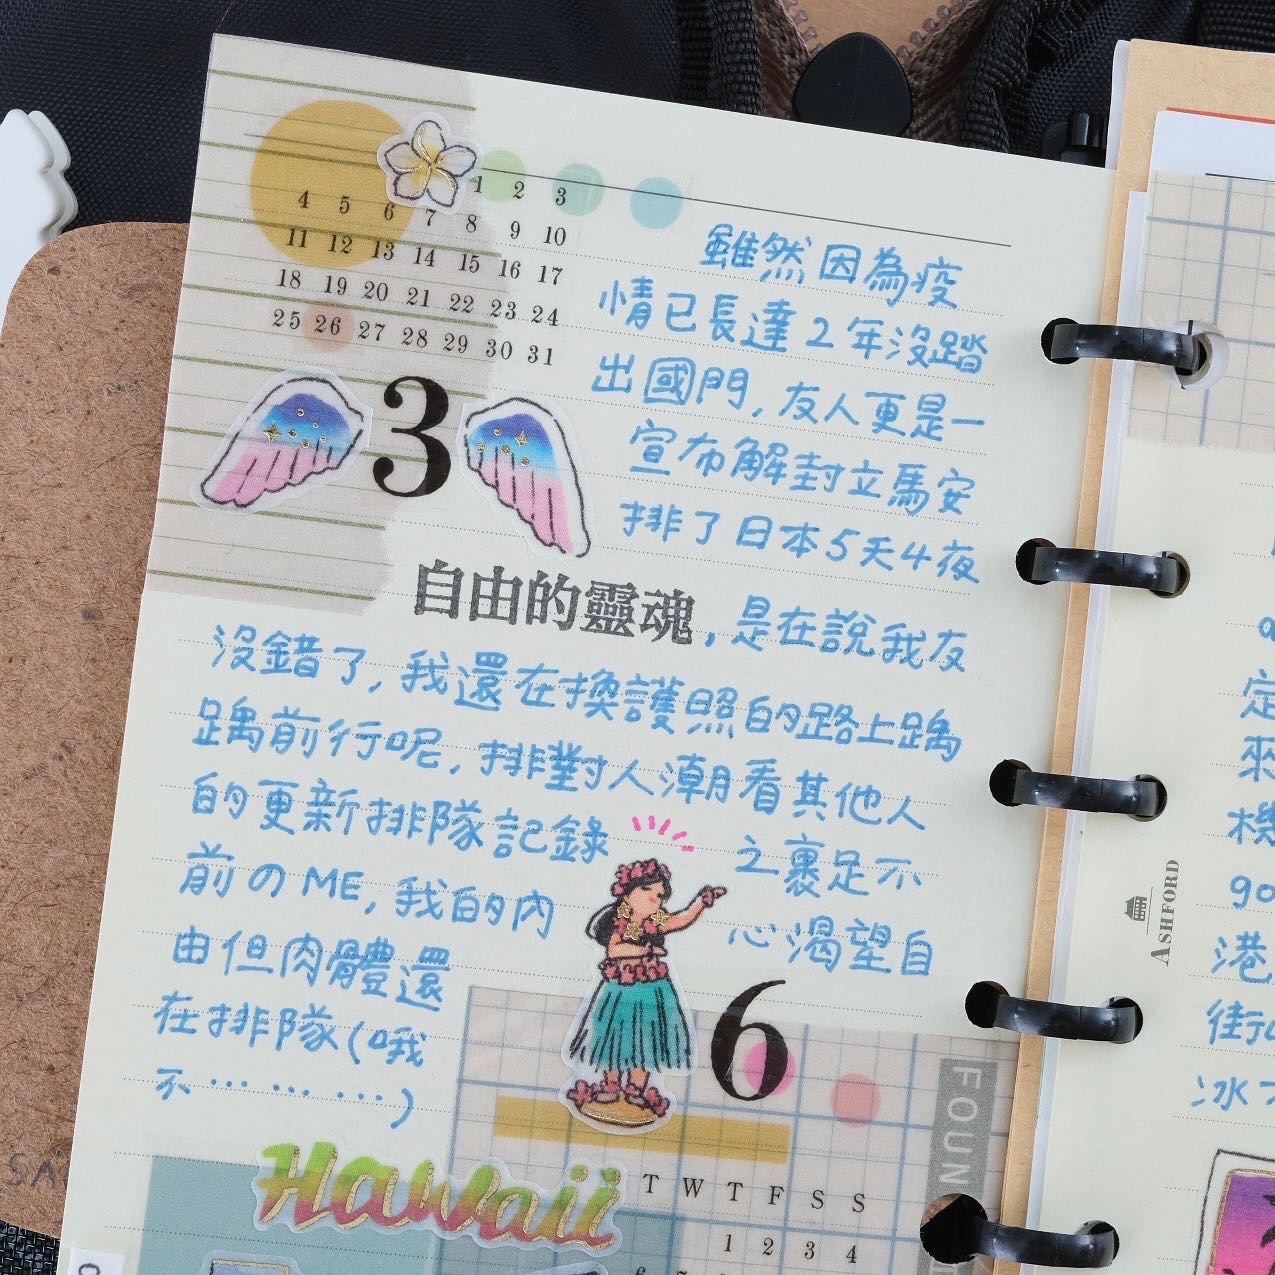 1 2 3
4 5 6 7 8 9 10
11 12 13 14 15 16 17
18 19 20 21 22 23 24
25 26 27 28 29 30 31
3
雖然因為疫
情已長達2年沒踏
出國門,友人更是一
宣布解封立馬安
排了日本5天4夜
自由的靈魂,是在說我友
沒錯了,我還在換護照的路上踽
踽前行呢,排對人潮看其他人
的更新排隊記錄 之裹足不
前のME,我的內 心渴望自
由但肉體還
在排隊(哦
不… … …)
6
FOUN
Hawaii
T W T F S S
1 2 3 4
ASHFORD
定
來
機
go
港
街
冰
SA